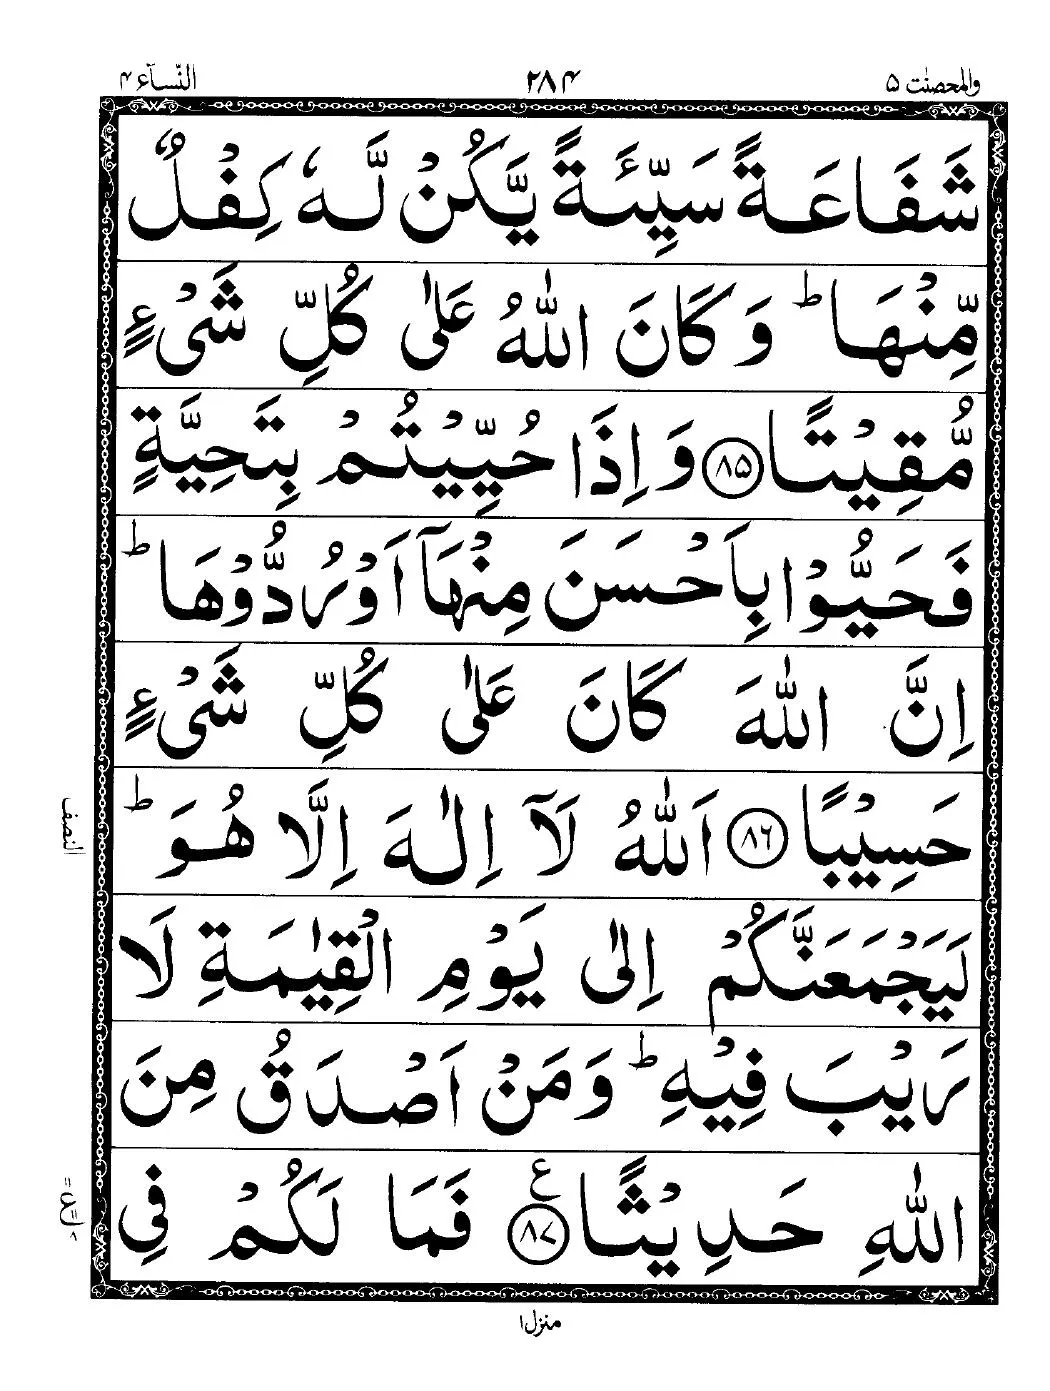 والمحصنٰت ۵
۲۸۴
النّسآء ۴
شَفَاعَةً سَيِّئَةً يَّكُنْ لَّهٗ كِفْلٌ
مِّنْهَا ؕ وَ كَانَ اللّٰهُ عَلٰى كُلِّ شَىْءٍ
مُّقِيْتًا ۸۵ وَ اِذَا حُيِّيْتُمْ بِتَحِيَّةٍ
فَحَيُّوْا بِاَحْسَنَ مِنْهَآ اَوْ رُدُّوْهَا ؕ
اِنَّ اللّٰهَ كَانَ عَلٰى كُلِّ شَىْءٍ
حَسِيْبًا ۸۶ اَللّٰهُ لَآ اِلٰهَ اِلَّا هُوَ ؕ
النصف
لَيَجْمَعَنَّكُمْ اِلٰى يَوْمِ الْقِيٰمَةِ لَا
رَيْبَ فِيْهِ ؕ وَ مَنْ اَصْدَقُ مِنَ
اللّٰهِ حَدِيْثًا ۸۷ ع فَمَا لَكُمْ فِى
منزل ۱